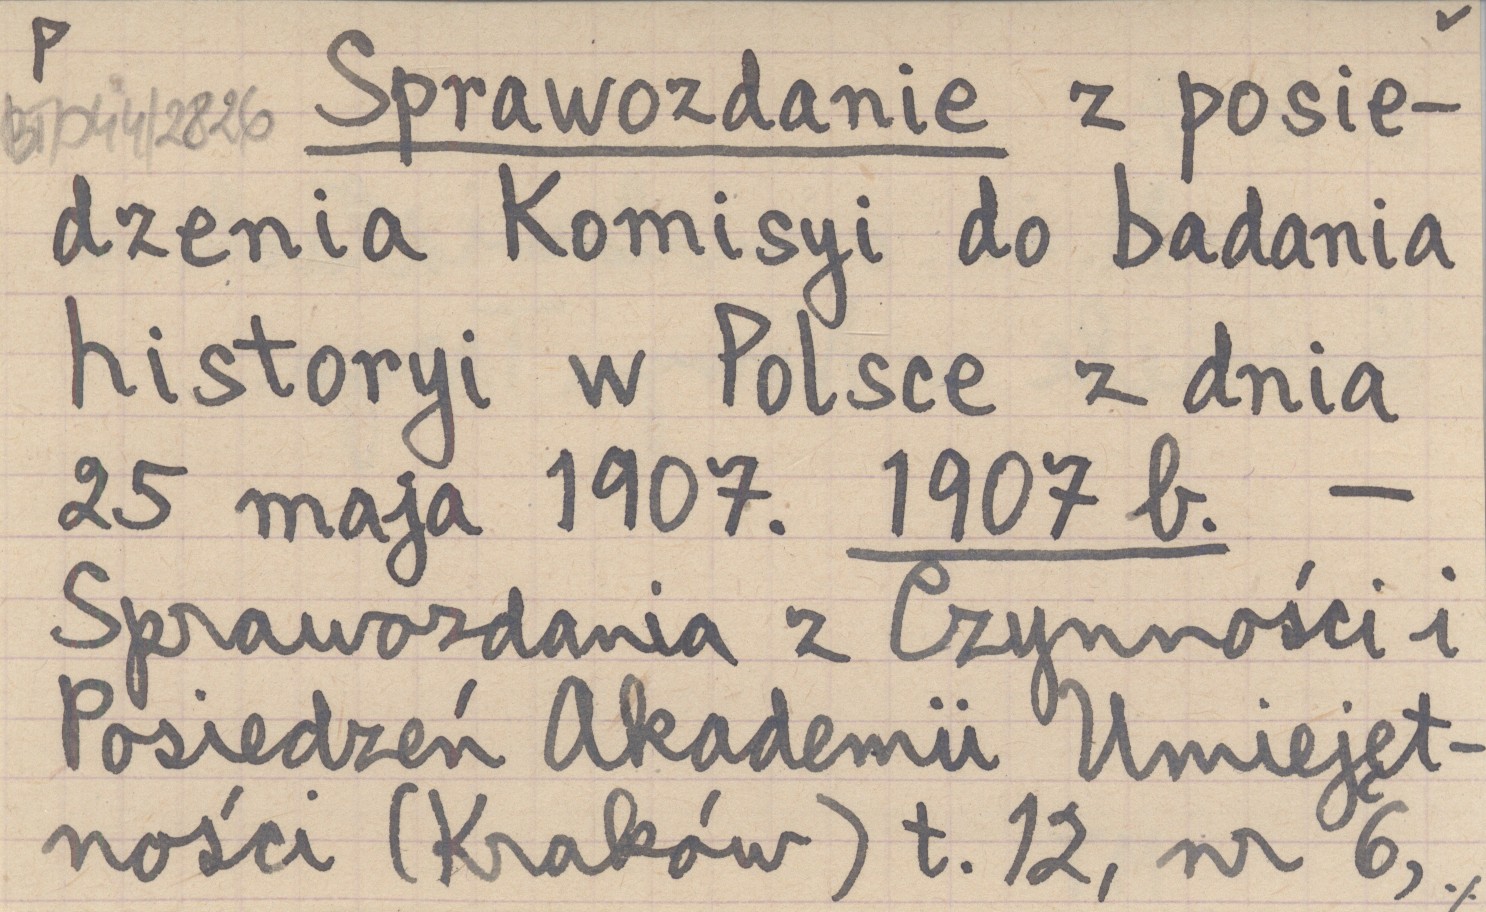 P ✓
Sprawozdanie z posie-
dzenia Komisyi do badania
historyi w Polsce z dnia
25 maja 1907. 1907 b. —
Sprawozdania z Czynności i
Posiedzeń Akademii Umiejęt-
ności (Kraków) t. 12, nr 6, ./.